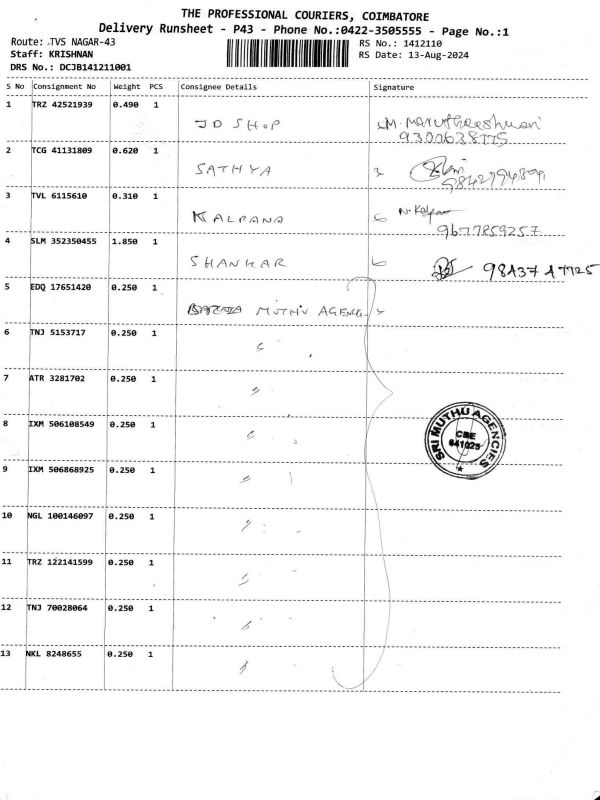 THE PROFESSIONAL COURIERS, COIMBATORE
Delivery Runsheet - P43 - Phone No.:0422-3505555 - Page No.:1
Route: TVS NAGAR-43
RS No.: 1412110
Staff: KRISHNAN
RS Date: 13-Aug-2024
DRS No.: DCJB141211001
S No Consignment No Weight PCS Consignee Details Signature
1 TRZ 42521939 0.490 1
JD SHOP
9300638775
2 TCG 41131809 0.620 1
SATHYA
3 TVL 6115610 0.310 1
KALPANA N. Kalpana
9677859257
4 SLM 352350455 1.850 1
SHANKAR 98437 47725
5 EDQ 17651420 0.250 1
MUTHU AGENCY
6 TNJ 5153717 0.250 1
7 ATR 3281702 0.250 1
8 IXM 506108549 0.250 1
SRI MUTHU AGENCIES
CBE
641025
9 IXM 506868925 0.250 1
10 NGL 100146097 0.250 1
11 TRZ 122141599 0.250 1
12 TNJ 70028064 0.250 1
13 NKL 8248655 0.250 1